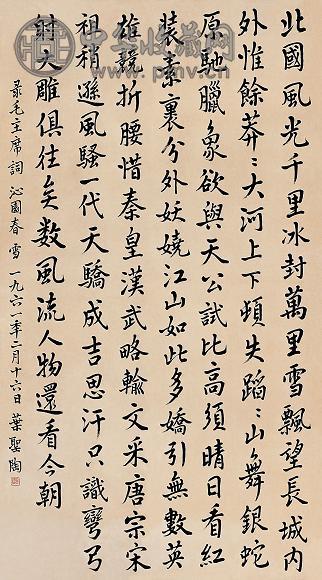 北國風光千里冰封萬里雪飄望長城內
外惟餘莽〻大河上下頓失滔〻山舞銀蛇
原馳臘象欲與天公試比高須晴日看紅
裝素裹分外妖嬈江山如此多嬌引無數英
雄競折腰惜秦皇漢武略輸文采唐宗宋
祖稍遜風騷一代天驕成吉思汗只識彎弓
射大雕俱往矣数風流人物還看今朝
录毛主席詞 沁園春 雪 一九六一年二月十六日 葉聖陶